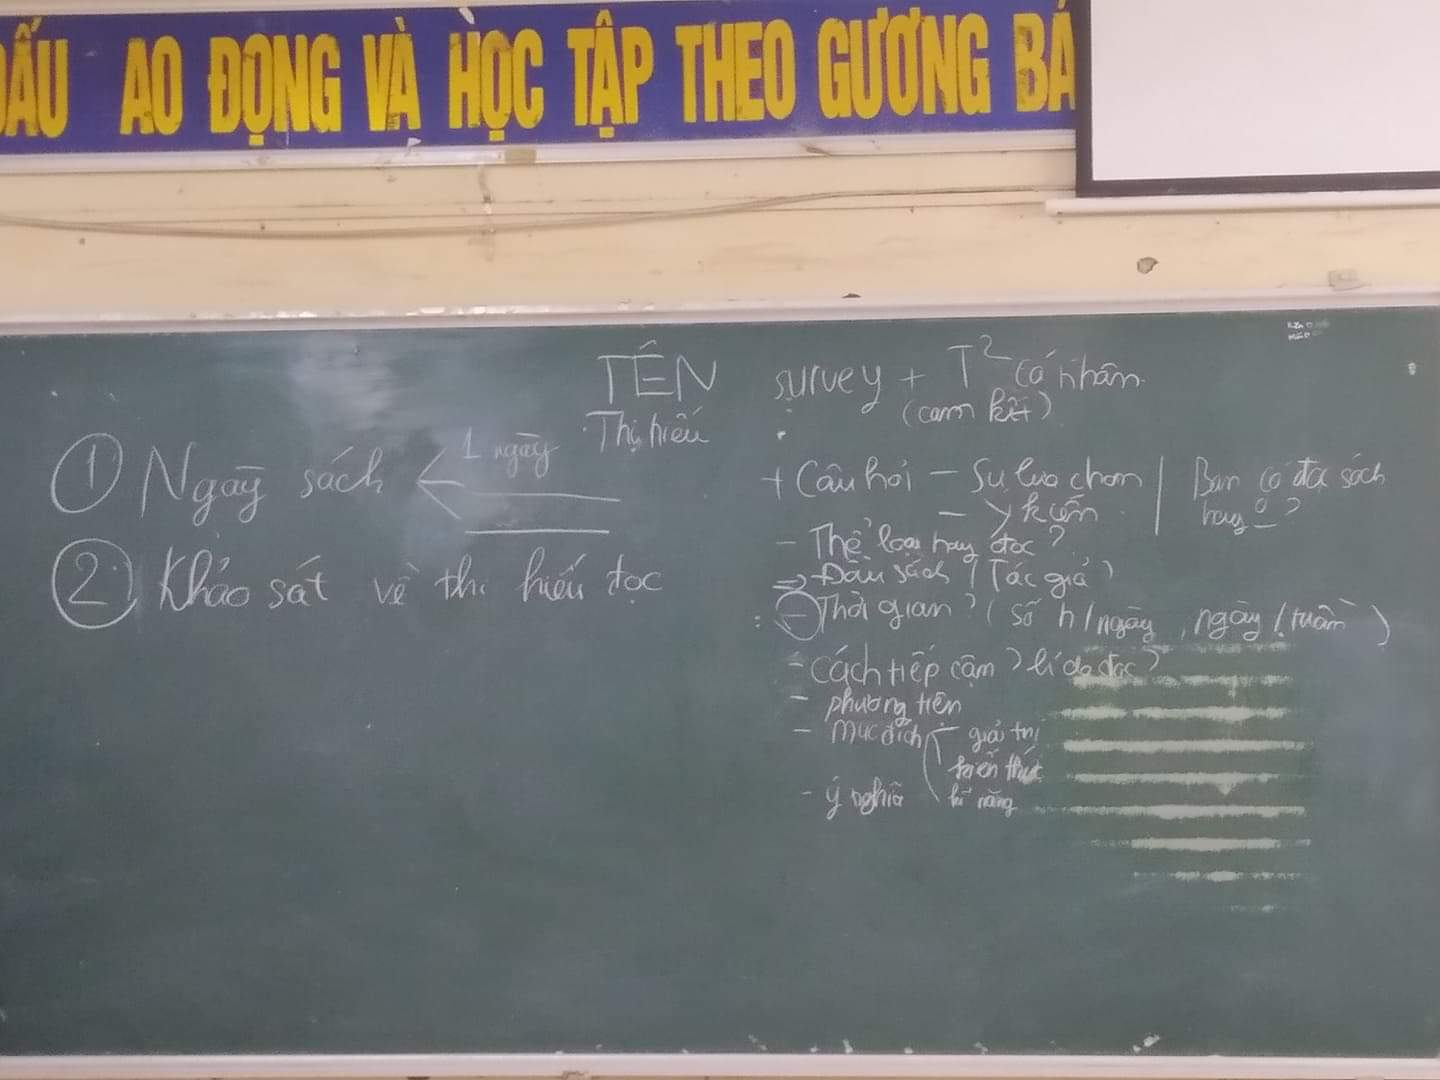 DẤU AO ĐỘNG VÀ HỌC TẬP THEO GƯƠNG BÁ
TÊN
Thị hiếu
① Ngày sách
1 ngày
② Khảo sát về thị hiếu đọc
survey + T² cá nhân
(cam kết)
+ Câu hỏi - Sự lựa chọn
- Ý kiến
Bạn có đọc sách
hay
- Thể loại hay đọc?
=> Đầu sách / Tác giả?
- Thời gian? (số h/ngày, ngày/tuần)
- Cách tiếp cận? lí do đọc?
- phương tiện
- mục đích
giải trí
kiến thức
kĩ năng
- ý nghĩa